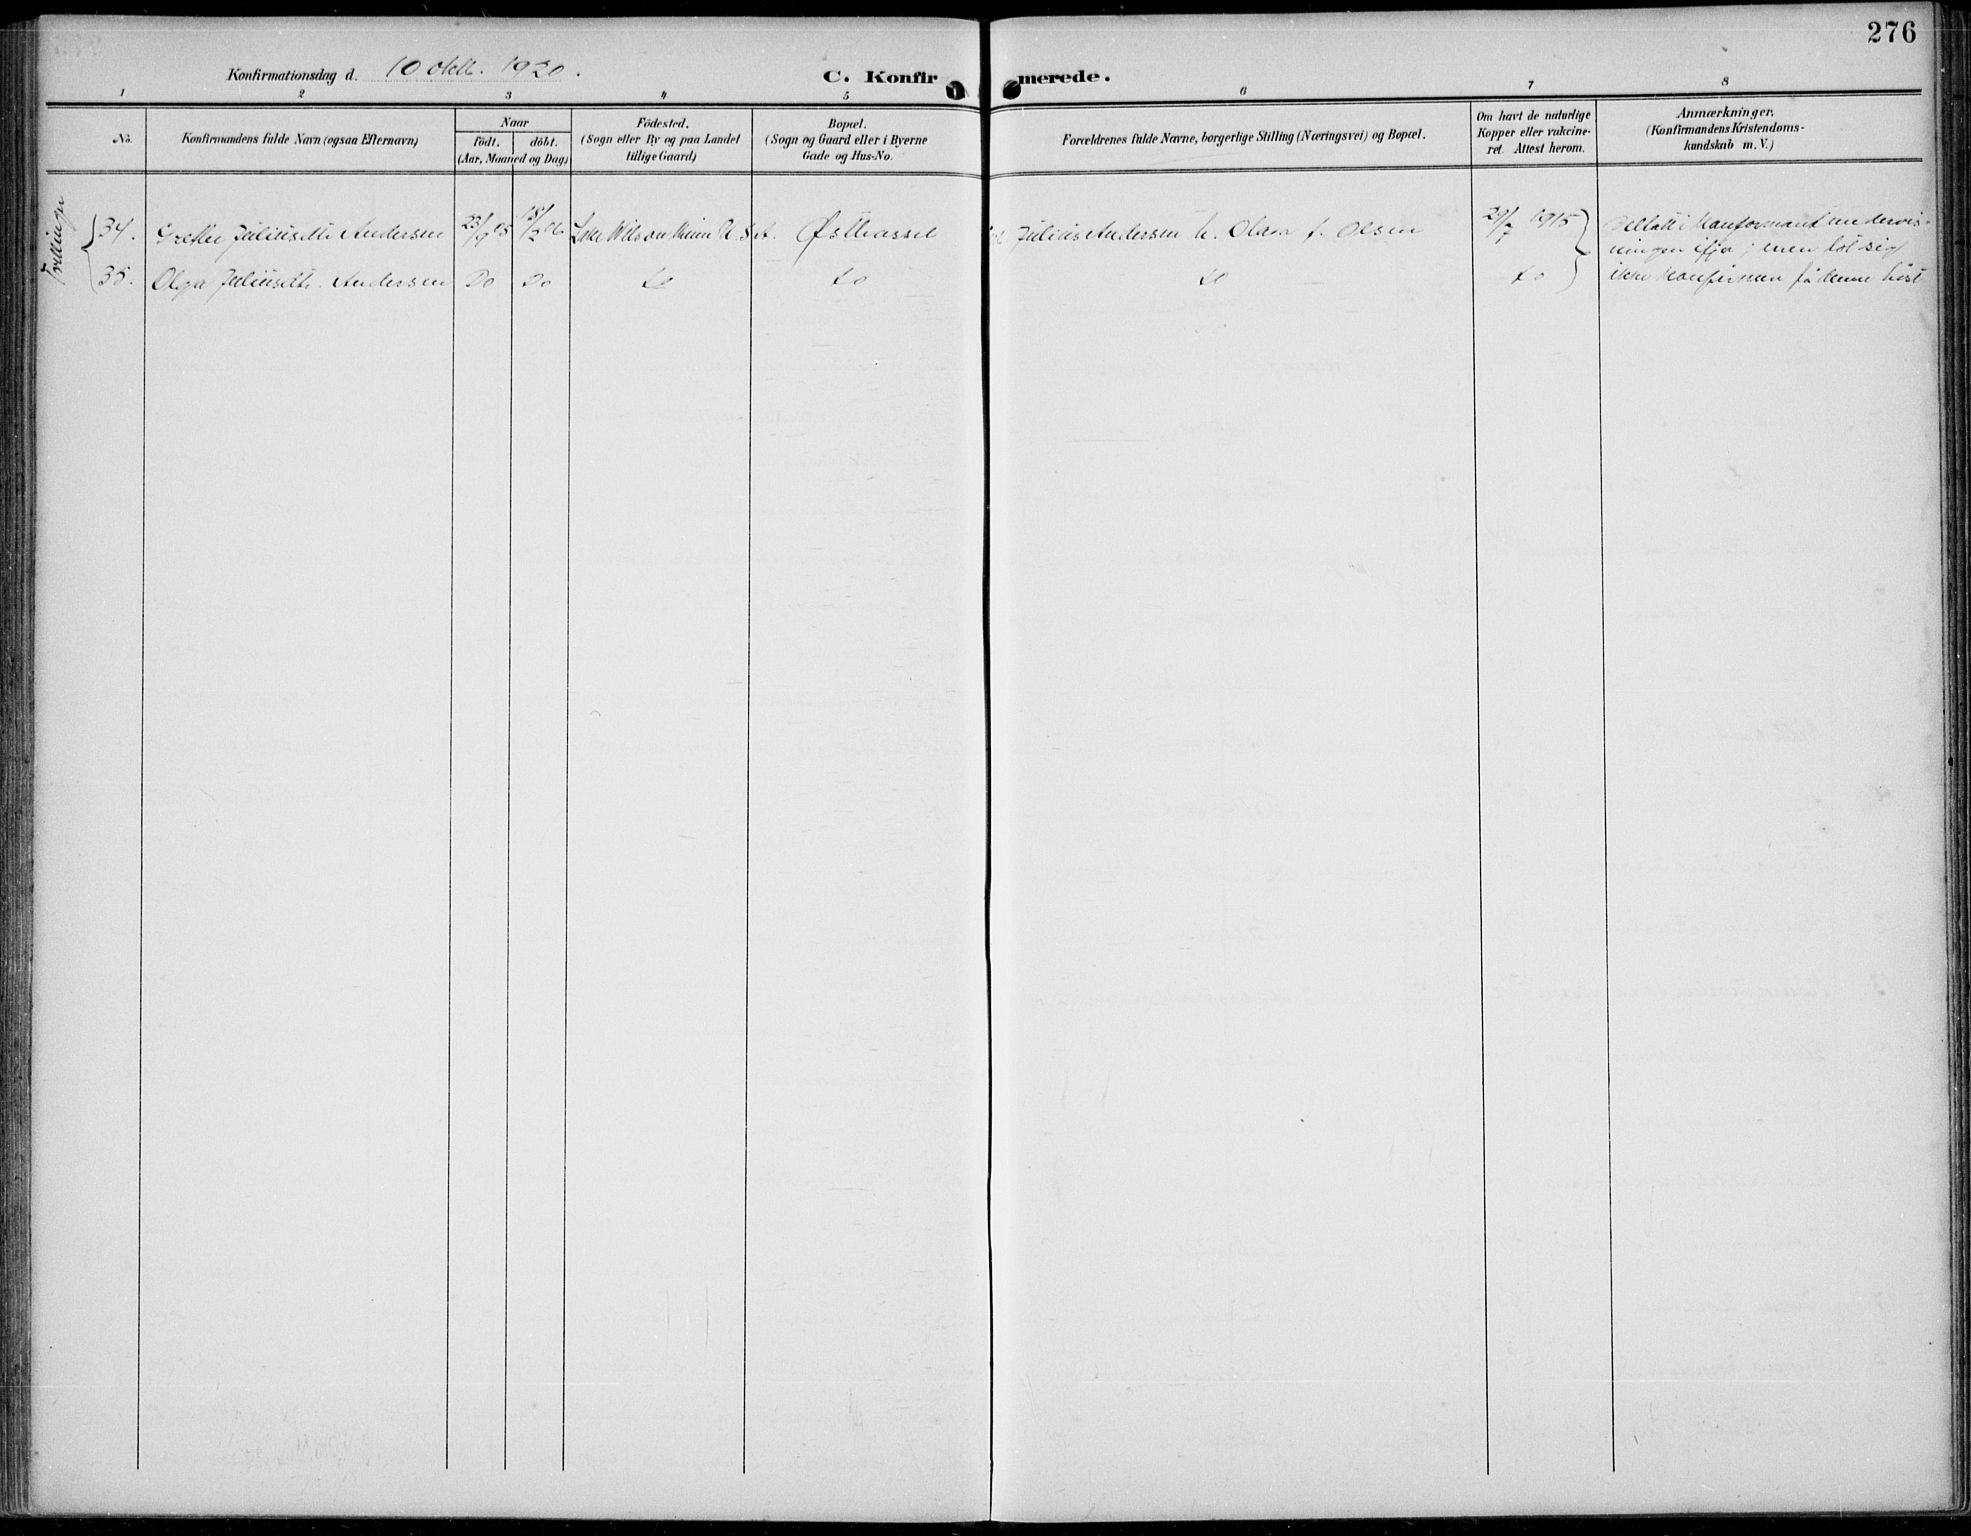 276
Konfirmationsdag d. 10 oktb. 1920.
C. Konfirmerede.
1 2 3 4 5 6 7 8
No.
Konfirmandens fulde Navn (ogsaa Efternavn)
Naar
födt. döbt.
(Aar, Maaned og Dag)
Födested.
(Sogn eller By og paa Landet
tillige Gaard)
Bopæl.
(Sogn og Gaard eller i Byerne
Gade og Hus-No.
Forældrenes fulde Navne, borgerlige Stilling (Næringsvei) og Bopæl.
Om havt de naturlige
Kopper eller vakcine-
ret. Attest herom.
Anmærkninger.
(Konfirmandens Kristendoms-
kundskab m. V.)
Tvillinger
34. Grethe Juliusdt. Andersen 23/9 05 18/2 06 Lake Wilson Minn U.S.A. Østhassel Julius Andersen h. Olava f. Olsen 29/7 1915 Deltatt i konfirmantundervis-
ningen ifjor; men lot sig
35. Olga Juliusdt. Andersen Do Do do do do do ikke konfirmere før denne høst